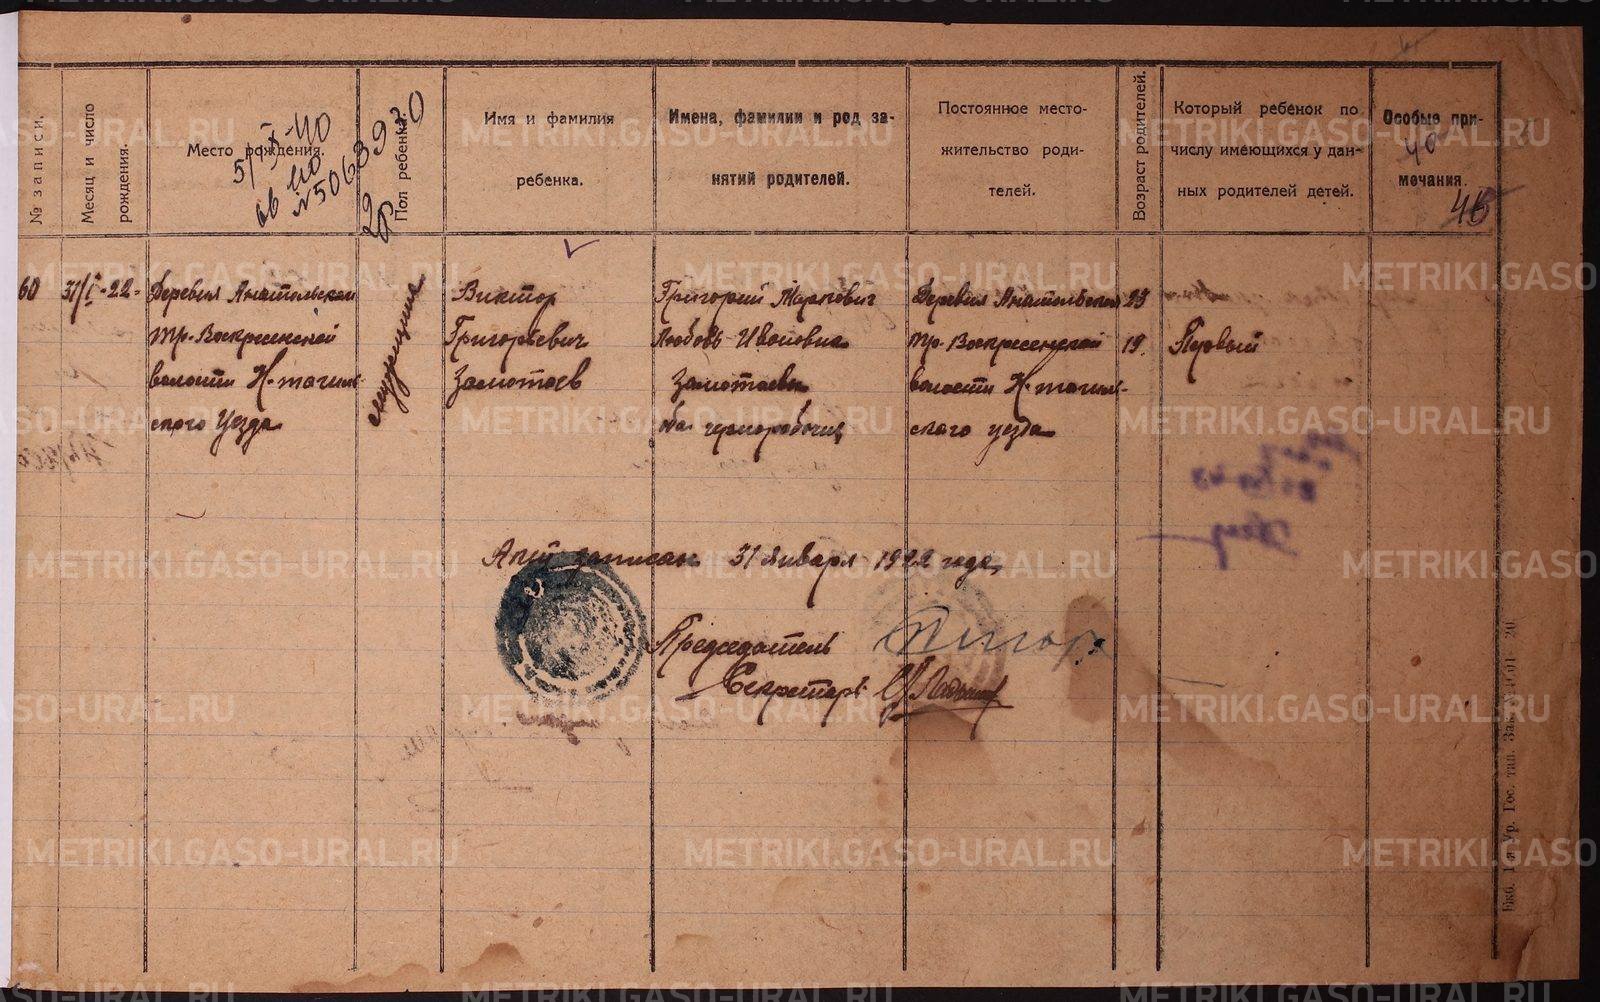 № записи.
Месяц и число рождения.
Место рождения.
5/X-40
№506893
Пол ребенка.
Имя и фамилия
ребенка.
Имена, фамилии и род за-
нятий родителей.
Постоянное место-
жительство роди-
телей.
Возраст родителей.
Который ребенок по
числу имеющихся у дан-
ных родителей детей.
Особые при-
мечания.
40
60
31/I-22-
Деревня Анатольской
тр. Воскресенской
волости Н-тагиль-
ского Уезда
мужчина
Виктор
Григорьевич
Замотаев
Григорий Маркович
Любовь Ивановна
Замотаевы
оба чернорабочии
Деревня Анатольской
тр. Воскресенской
волости Н-тагиль-
ского уезда
19.
Первый
Акт записан 31 Января 1922 года
Председатель
Секретарь
METRIKI.GASO-URAL.RU